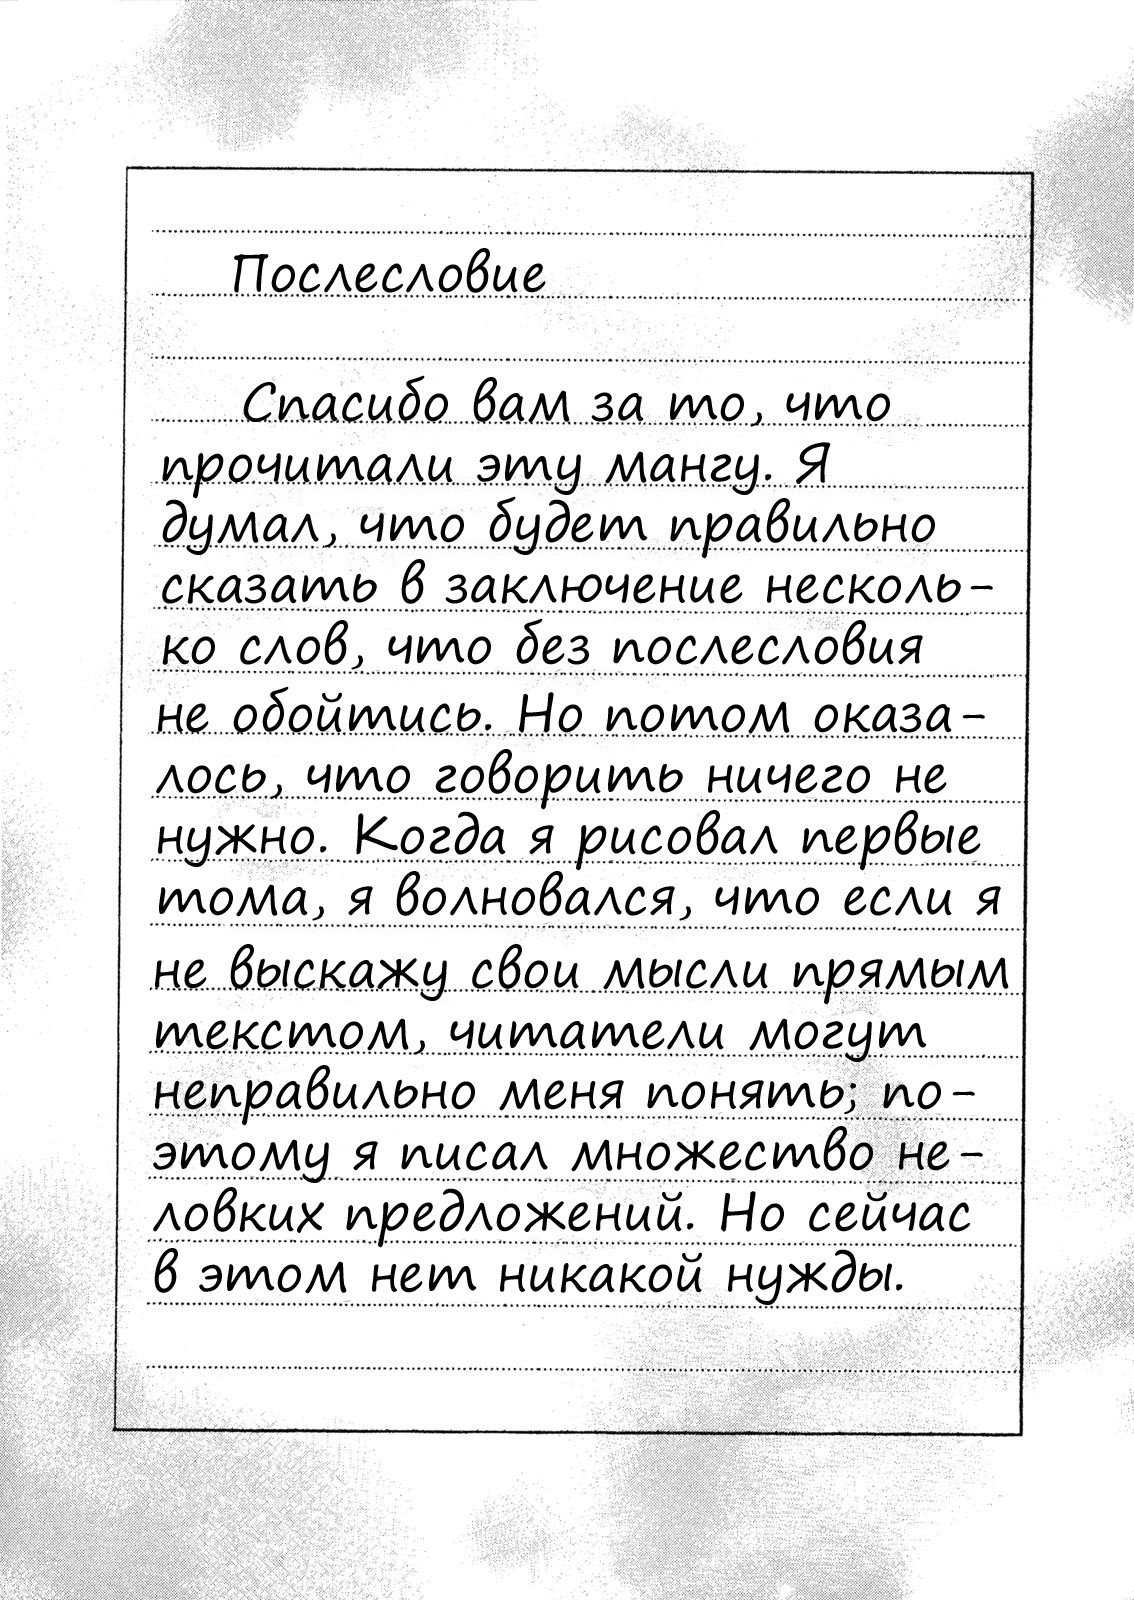 Послесловие
Спасибо вам за то, что
прочитали эту мангу. Я
думал, что будет правильно
сказать в заключение несколь-
ко слов, что без послесловия
не обойтись. Но потом оказа-
лось, что говорить ничего не
нужно. Когда я рисовал первые
тома, я волновался, что если я
не выскажу свои мысли прямым
текстом, читатели могут
неправильно меня понять; по-
этому я писал множество не-
ловких предложений. Но сейчас
в этом нет никакой нужды.